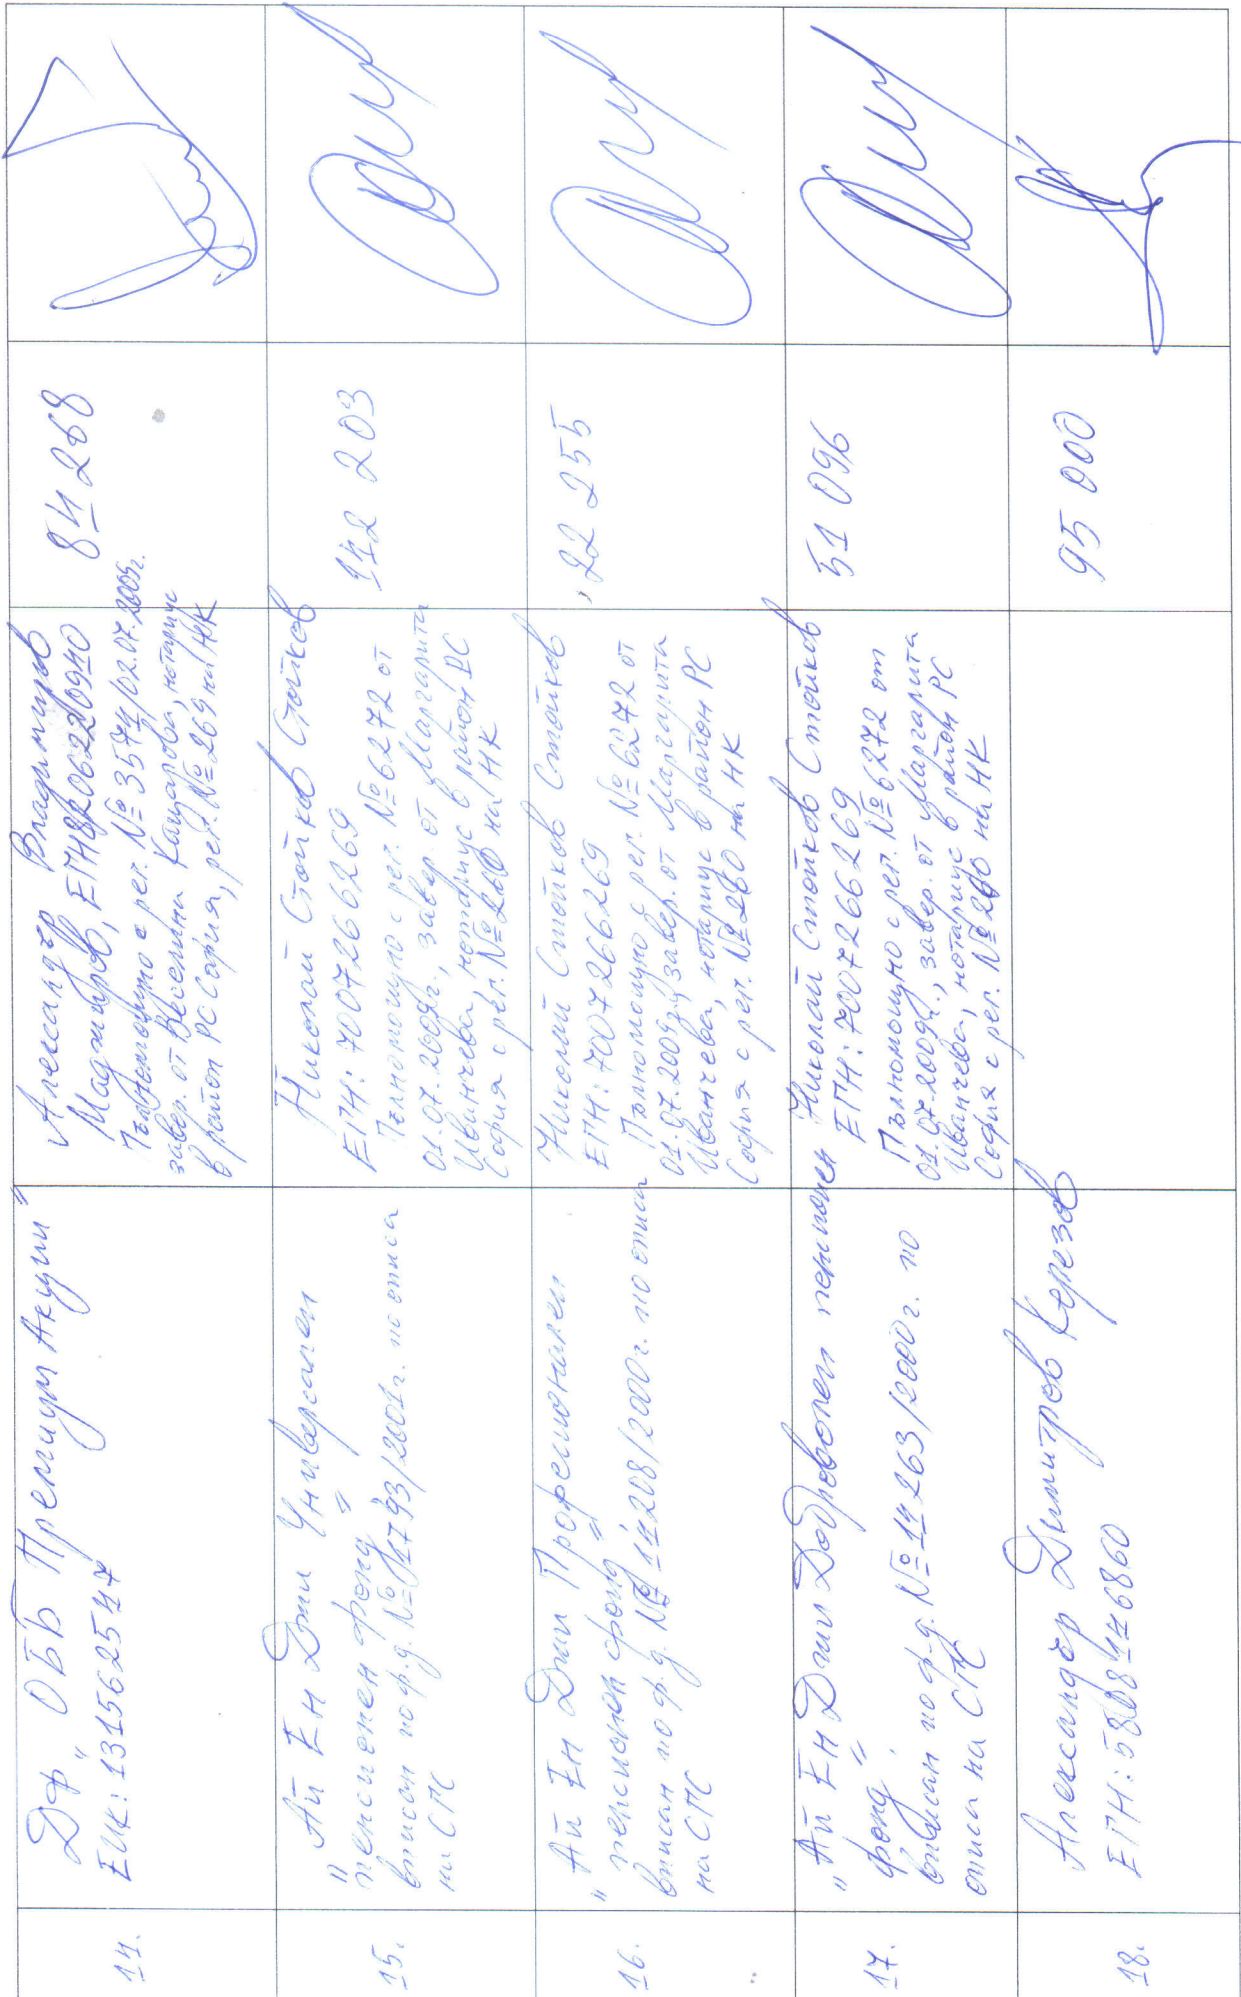 14.
ДФ "ОББ Премиум Акции"
ЕИК: 131562547
Александър Владимиров
Маджиров, ЕГН 8206220940
Пълномощно с рег. № 3574/02.07.2009г.
завер. от Веселина Кацарова, нотариус
в район РС София, рег. № 269 на НК
84 268
15.
"Ай Ен Джи Универсален
пенсионен фонд"
вписан по ф.д. № 1793/2001г. по описа
на СГС
Николай Стойков Стойков
ЕГН: 7007266269
Пълномощно с рег. № 6272 от
01.07.2009г., завер. от Маргарита
Иванчева, нотариус в район РС
София с рег. № 260 на НК
142 203
16.
"Ай Ен Джи Професионален
пенсионен фонд"
вписан по ф.д. № 14208/2000г. по описа
на СГС
Николай Стойков Стойков
ЕГН: 7007266269
Пълномощно с рег. № 6272 от
01.07.2009г., завер. от Маргарита
Иванчева, нотариус в район РС
София с рег. № 260 на НК
22 255
17.
"Ай Ен Джи Доброволен пенсионен
фонд"
вписан по ф.д. № 14263/2000г. по
описа на СГС
Николай Стойков Стойков
ЕГН: 7007266269
Пълномощно с рег. № 6272 от
01.07.2009г., завер. от Маргарита
Иванчева, нотариус в район РС
София с рег. № 260 на НК
51 096
18.
Александър Димитров Керезов
ЕГН: 5808146860
95 000